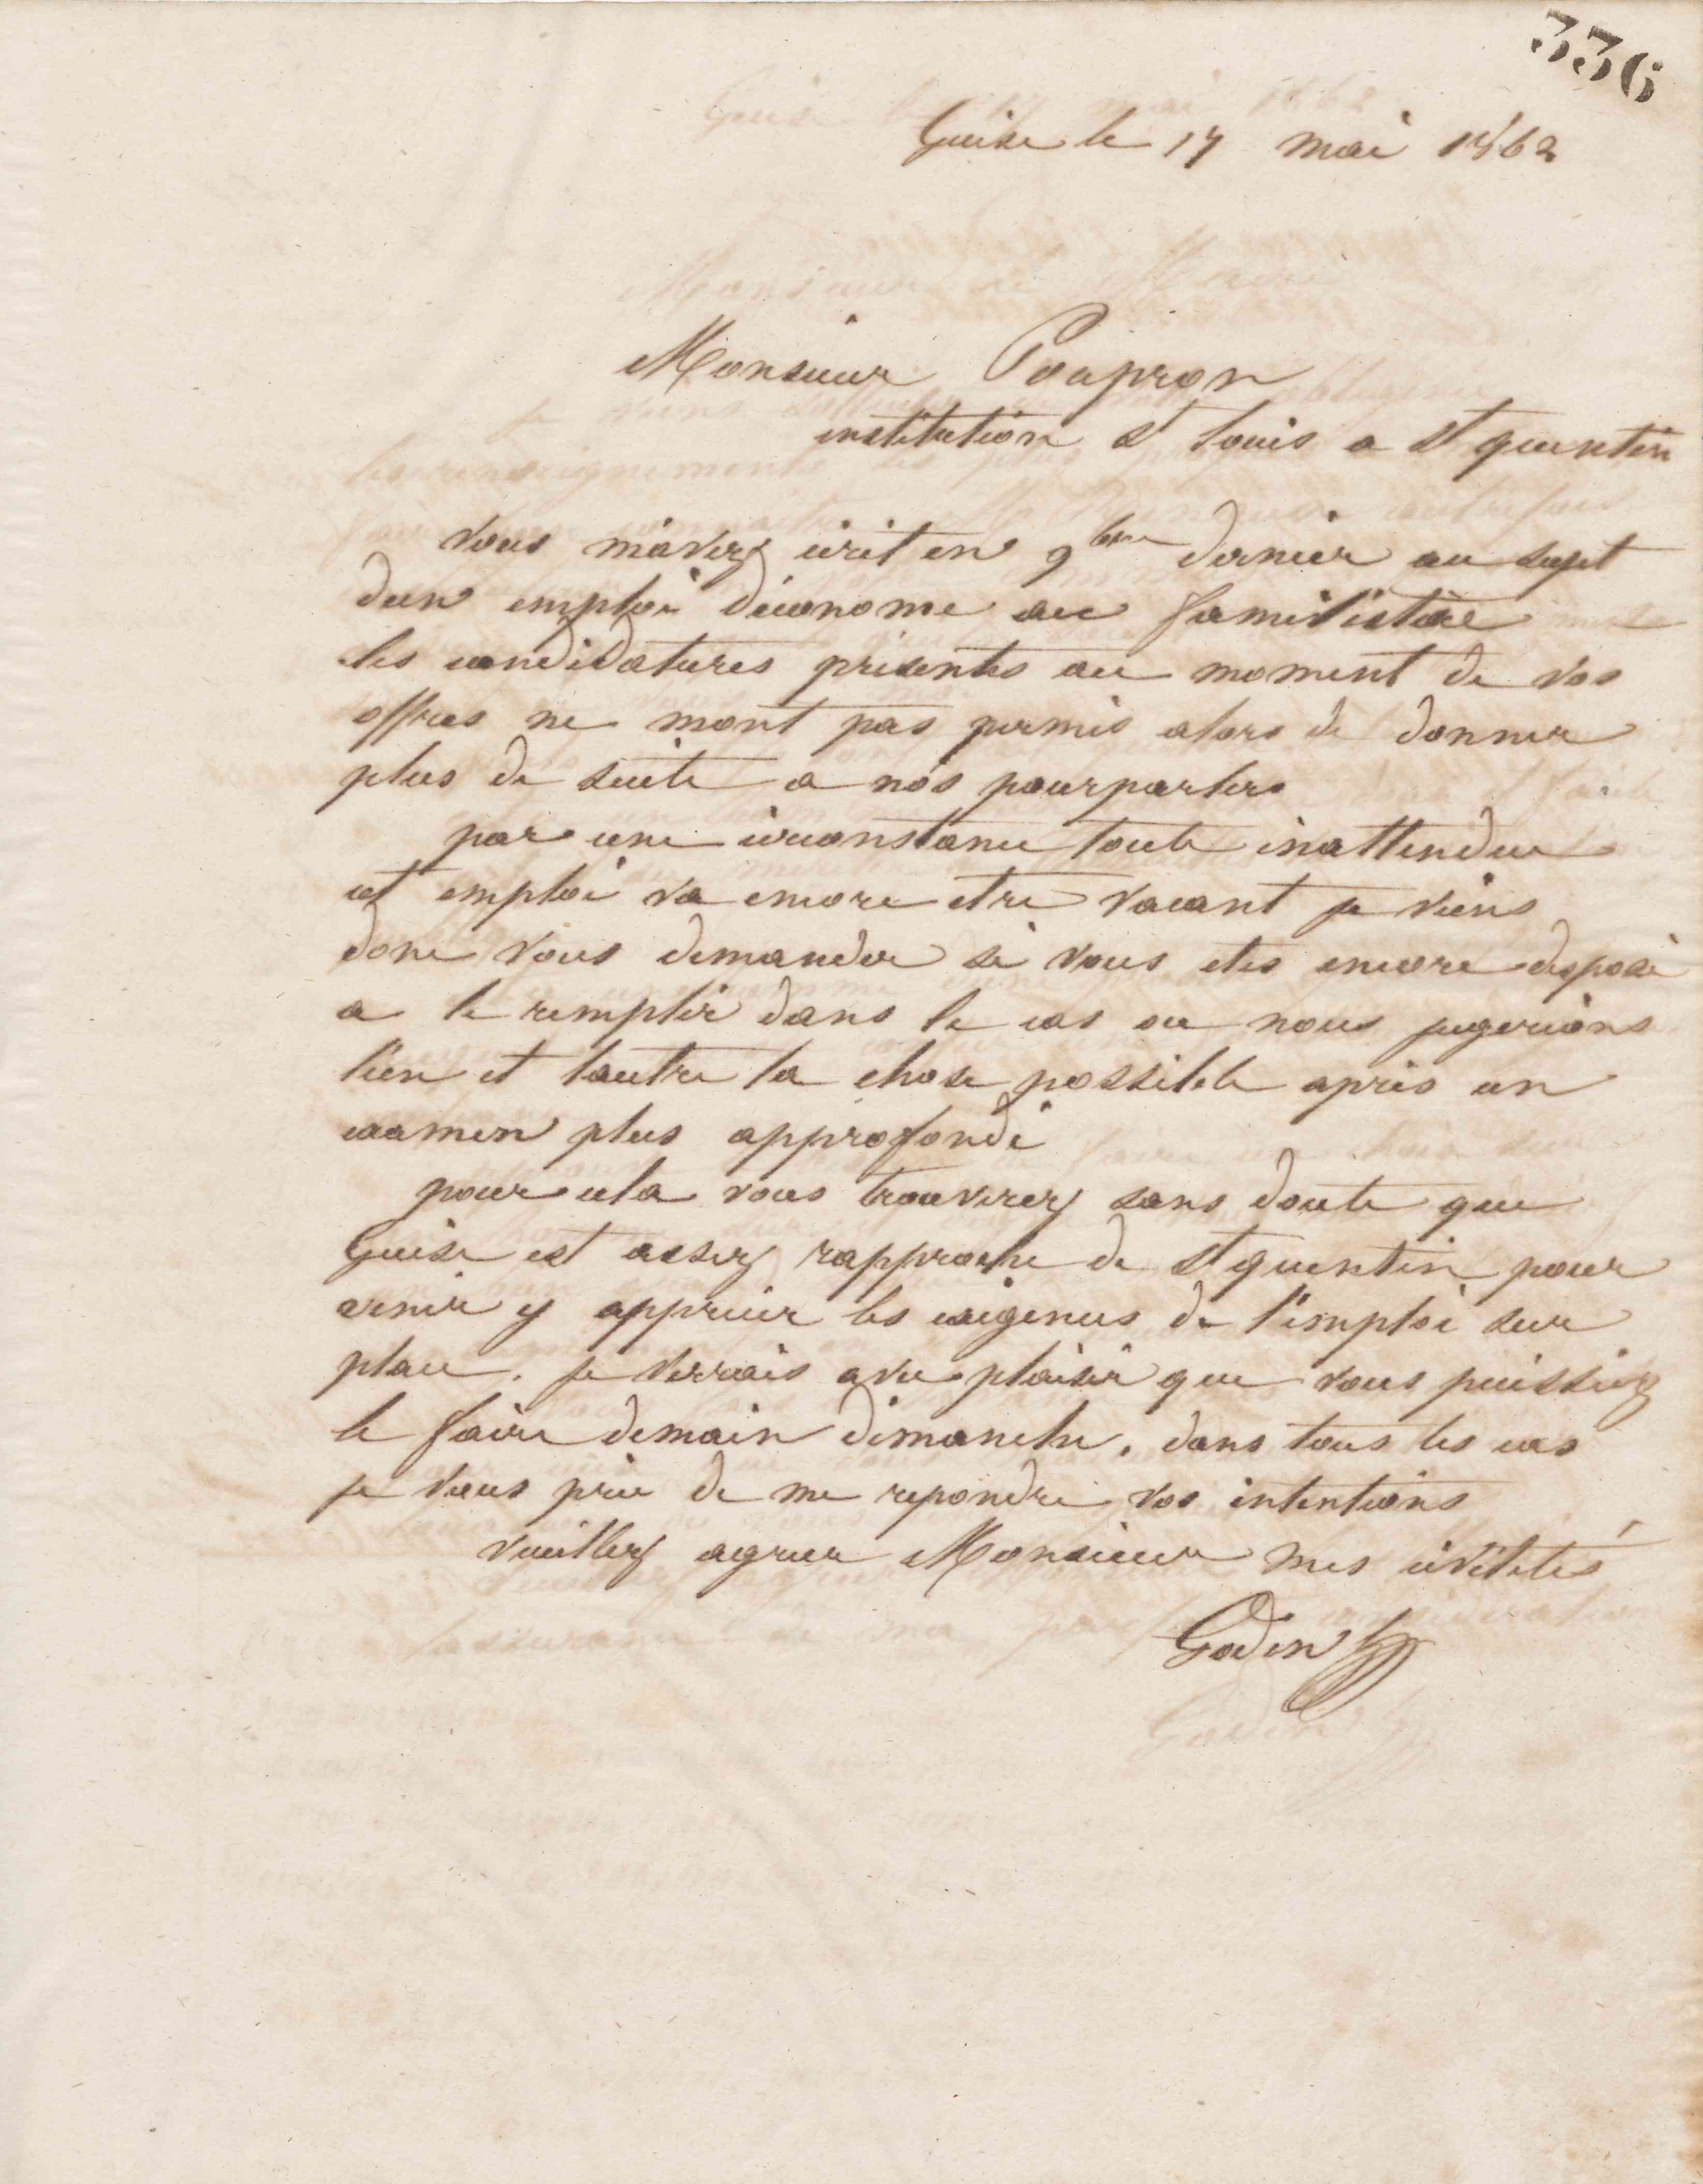 336
Guise le 17 mai 1862
Monsieur Poupron
institution St Louis a St quentin
Vous m'avez écrit en 9bre dernier au sujet
dun emploi d'économe au familistère
les candidatures présentes au moment de vos
offres ne mont pas permis alors de donner
plus de suite a nos pourparlers
par une circonstance toute inattendue
cet emploi va encore etre vacant je viens
donc vous demander si vous etes encore disposé
a le remplir dans le cas ou nous jugerions
l'un et lautre la chose possible après un
examen plus approfondi
pour cela vous trouverez sans doute que
Guise est assez rapproché de St quentin pour
venir y apprécier les exigences de l'emploi sur
place. je verrais avec plaisir que vous puissiez
le faire demain dimanche. dans tous les cas
je vous prie de me repondre vos intentions
veuillez agréer Monsieur mes civilités
Godin